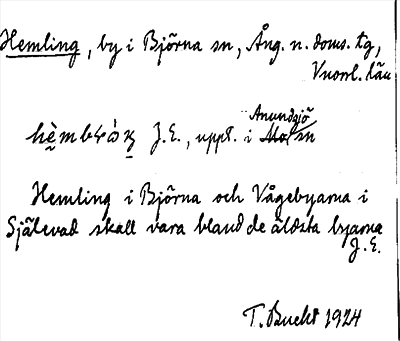 Hemling, by i Björna sn, Ång. n. doms. tg,
Vnorrl. län
J.E., uppt. i Anundsjö sn
Hemling i Björna och Vågebyarna i
Själevad skall vara bland de äldsta byarna
J.E.
T. Bucht 1924